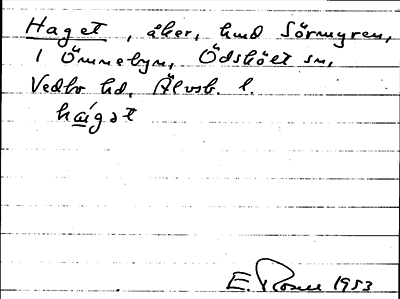 Haget, åker, hmd Sörmyren,
i Ömmebyn, Ödskölt sn,
Vedbo hd, Älvsb. l.
hágət
E. Rosell 1953